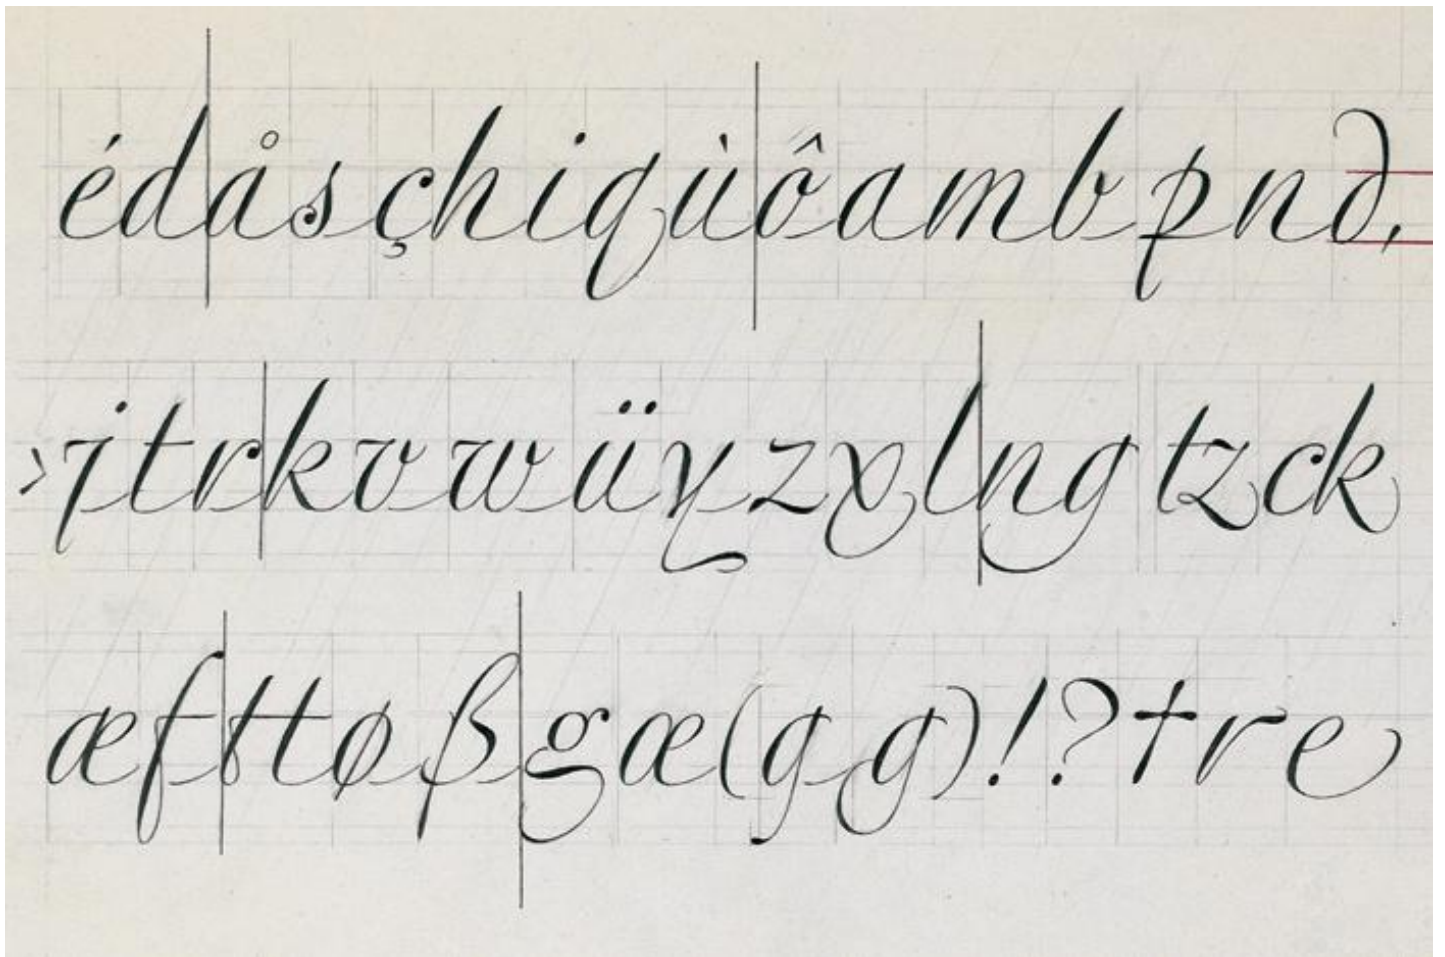 édåsçhiqùôambpnd,
jtrkvwüyzxlngtzck
æfttøßgœ(gg)!?†re